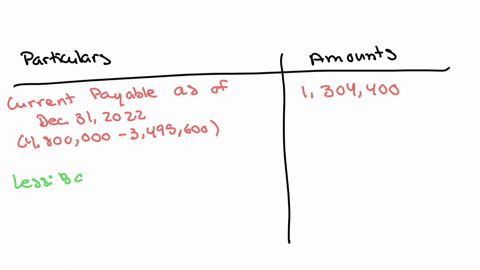 Particulars Amounts
Current Payable as of 1,304,400
Dec 31, 2022
(4,800,000 - 3,495,600)
Less: Ba